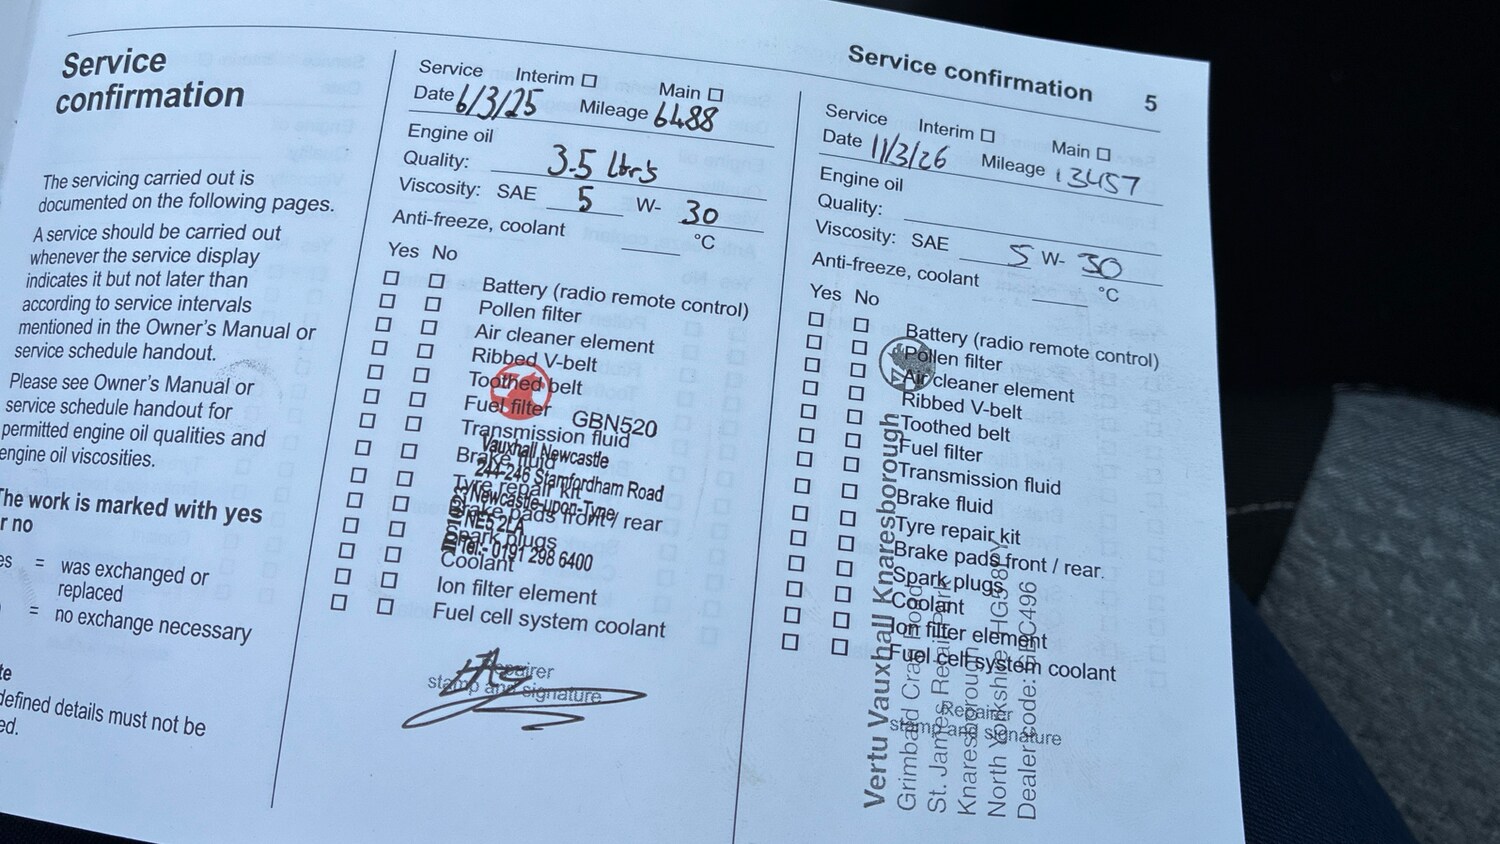 Service confirmation 5
Service
confirmation
The servicing carried out is
documented on the following pages.
A service should be carried out
whenever the service display
indicates it but not later than
according to service intervals
mentioned in the Owner's Manual or
service schedule handout.
Please see Owner's Manual or
service schedule handout for
permitted engine oil qualities and
engine oil viscosities.
The work is marked with yes
r no
es = was exchanged or
replaced
= no exchange necessary
te
defined details must not be
ed.
Service Interim ☐ Main ☐
Date 6/3/25 Mileage 6488
Engine oil
Quality: 3.5 ltrs
Viscosity: SAE 5 W- 30
Anti-freeze, coolant °C
Yes No
☐ ☐ Battery (radio remote control)
☐ ☐ Pollen filter
☐ ☐ Air cleaner element
☐ ☐ Ribbed V-belt
☐ ☐ Toothed belt
☐ ☐ Fuel filter
☐ ☐ Transmission fluid
☐ ☐ Brake fluid
☐ ☐ Tyre repair kit
☐ ☐ Brake pads front / rear
☐ ☐ Spark plugs
☐ ☐ Coolant
☐ ☐ Ion filter element
☐ ☐ Fuel cell system coolant
GBN520
Vauxhall Newcastle
244-246 Stamfordham Road
Newcastle-upon-Tyne
NE5 2LA
Tel:- 0191 298 6400
Repairer
stamp and signature
Service Interim ☐ Main ☐
Date 11/3/26 Mileage 13457
Engine oil
Quality:
Viscosity: SAE 5 W- 30
Anti-freeze, coolant °C
Yes No
☐ ☐ Battery (radio remote control)
☐ ☐ Pollen filter
☐ ☐ Air cleaner element
☐ ☐ Ribbed V-belt
☐ ☐ Toothed belt
☐ ☐ Fuel filter
☐ ☐ Transmission fluid
☐ ☐ Brake fluid
☐ ☐ Tyre repair kit
☐ ☐ Brake pads front / rear
☐ ☐ Spark plugs
☐ ☐ Coolant
☐ ☐ Ion filter element
☐ ☐ Fuel cell system coolant
Repairer
stamp and signature
Vertu Vauxhall Knaresborough
Grimbald Crag Road
St. James Retail Park
Knaresborough
North Yorkshire HG5 8PY
Dealer code: